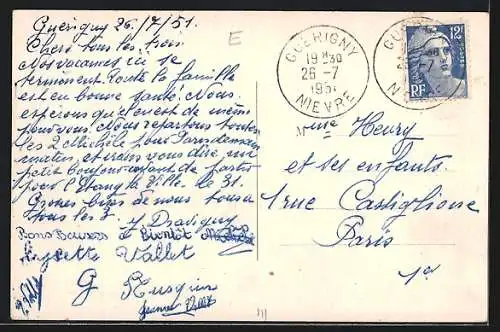 Guérigny 26/7/51.
Chers tous les trois
Nos vacances ici se
terminent. Toute la famille
est en bonne santé. Nous
espérons qu'il en est de même
pour vous. Nous repartons toutes
les 2 Michèle pour Paris demain
matin, et irons vous dire un
petit bonjour avant de partir
pour l'Étang la Ville. le 31.
Grosses bises de nous tous à
tous les 3.
Bons Baisers à bientôt Michèle
Vallet
G
E
GUÉRIGNY
19 H30
26 -7
1951
NIÈVRE
GUÉRIGNY
12F
RF
Mme Henry
et ses enfants
1 rue Castiglione
Paris
1er